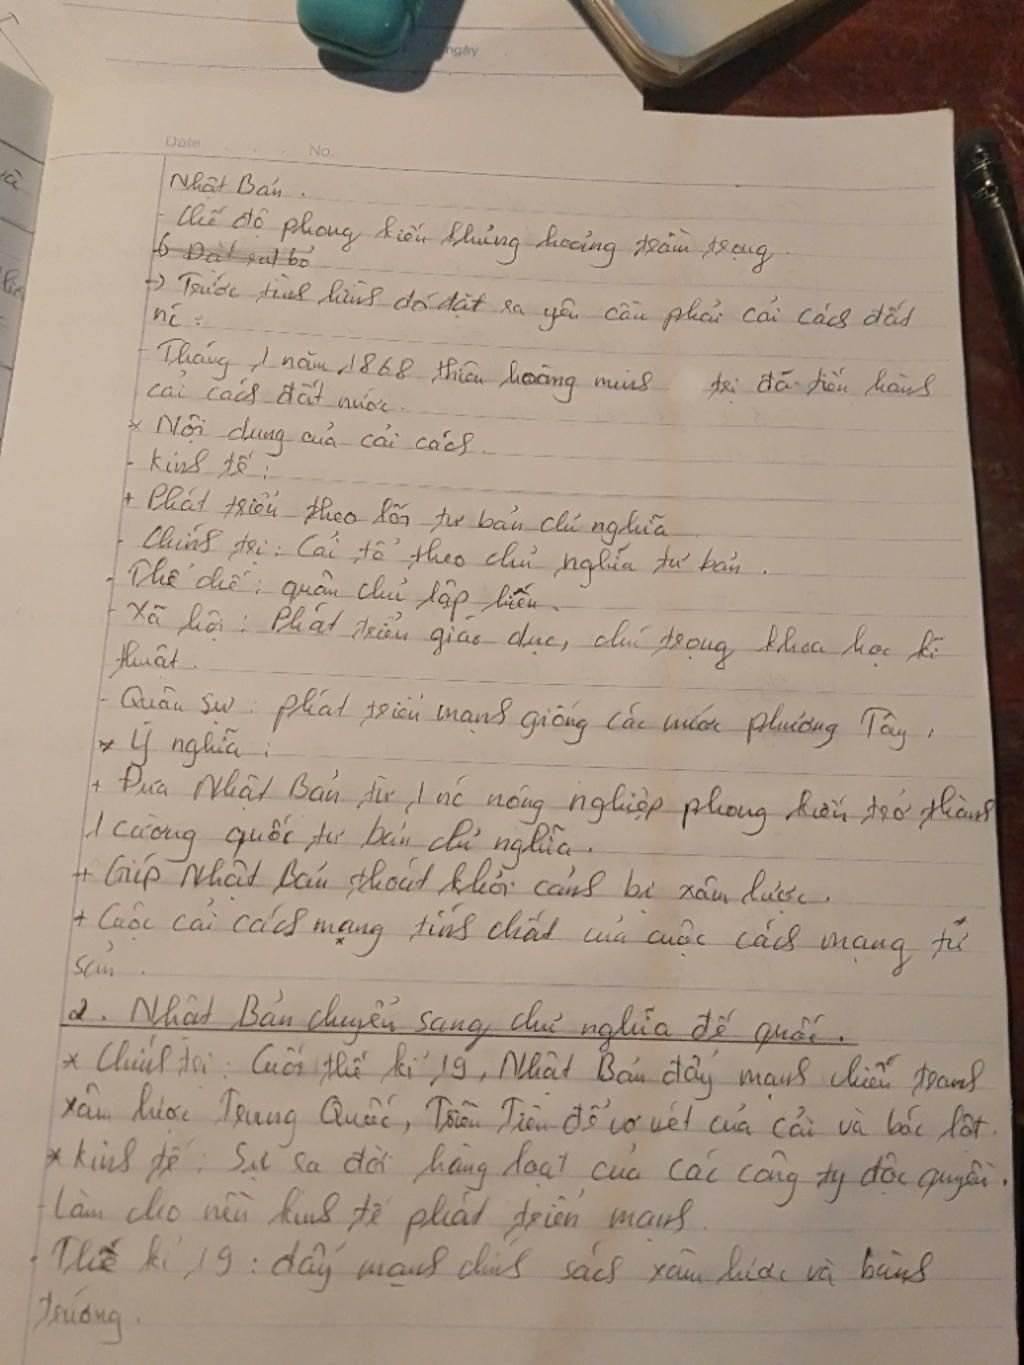 ngày
Date No.
Nhật Bản.
- Chế độ phong kiến khủng hoảng trầm trọng.
→ Trước tình hình đó đặt ra yêu cầu phải cải cách đất
nc:
- Tháng 1 năm 1868 thiên hoàng minh trị đã tiến hành
cải cách đất nước.
* Nội dung của cải cách.
- Kinh tế:
+ Phát triển theo lối tư bản chủ nghĩa
- Chính trị: Cải tổ theo chủ nghĩa tư bản.
- Thể chế: quân chủ lập hiến.
- Xã hội: Phát triển giáo dục, chú trọng khoa học kĩ
thuật.
- Quân sự: phát triển mạnh giống các nước phương Tây.
* Ý nghĩa:
+ Đưa Nhật Bản từ 1 nc nông nghiệp phong kiến trở thành
1 cường quốc tư bản chủ nghĩa.
+ Giúp Nhật Bản thoát khỏi cảnh bị xâm lược.
+ Cuộc cải cách mạng tính chất của cuộc cách mạng tư
sản.
2. Nhật Bản chuyển sang chủ nghĩa đế quốc.
* Chính trị: Cuối thế kỉ 19, Nhật Bản đẩy mạnh chiến tranh
xâm lược Trung Quốc, Triều Tiên để vơ vét của cải và bóc lột.
* Kinh tế: Sự ra đời hàng loạt của các công ty độc quyền.
- Làm cho nền kinh tế phát triển mạnh.
- Thế kỉ 19: đẩy mạnh chính sách xâm lược và bành
trướng.